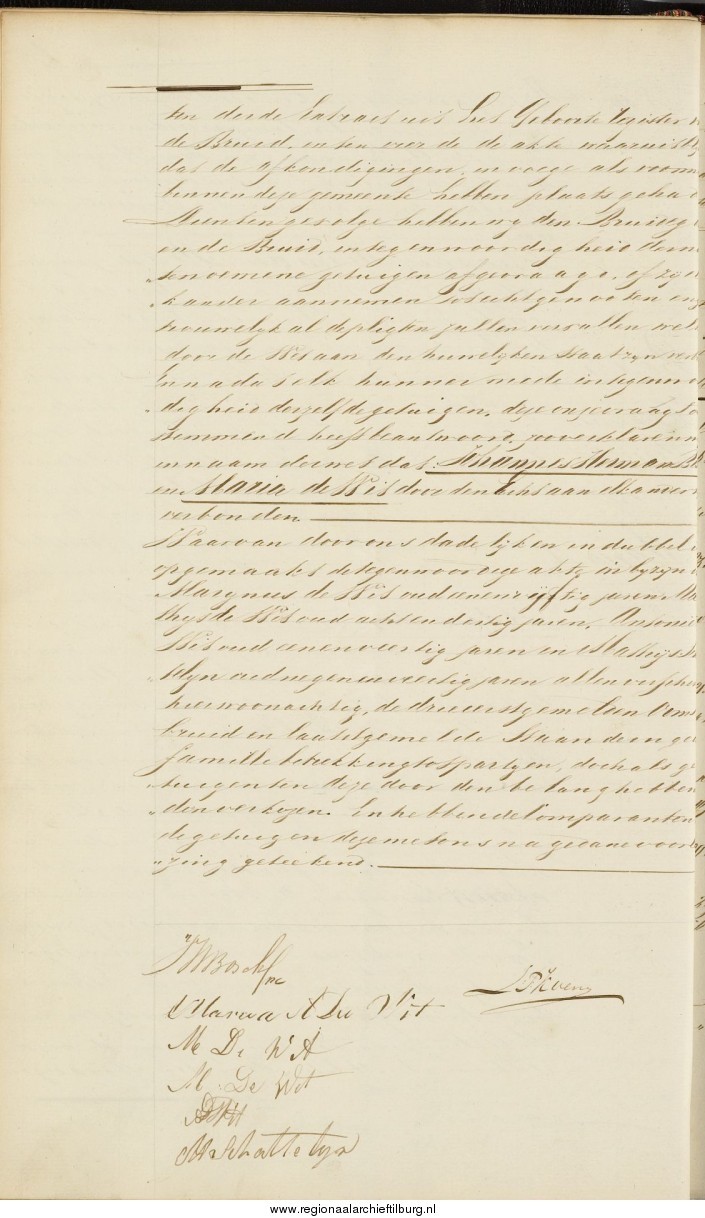 ten derde Extract uit het Geboorte register
de Bruid. en ten vierde de akte waaruit
dat de afkondigingen, in voege als voorm
binnen deze gemeente hebben plaats geha
den ten gevolge hebben wy den Bruideg
en de Bruid, in tegenwoordigheid der na
tenoemene getuigen afgevraagd, of zy el
kander aannemen tot echtgenooten en
trouwelyk al de pligten zullen vervullen welke
door de Wet aan den huwelyken staat zyn verb
En na dat elk hunner mede in tegenwoor
digheid derzelfde getuigen, deze onze vraag to
stemmend heeft beantwoord, zoo verklaren
in naam der wet dat Johannes Herman B
en Maria de Wit door den echt aan elkander
verbonden.
Waarvan door ons dadelyk en in dubbel
opgemaakt de tegenwoordige akte, in byzyn
Margnus de Wit oud een en vyftig jaren Ma
thys de Wit oud acht en dertig jaren,
Wit oud een en veertig jaren en Mathys
telyn oud negen en veertig jaren allen
hier woonachtig, de drie eerstgemelden
bruid en laatstgemelde staande in gee
familie betrekking tot partyen, doch als ge
tuigen ten deze door den belanghebben
den verkozen. En hebben de Comparanten
de getuigen deze met ons na gedane voorle
zing geteekend.
JH Bosch
Maria A De Wit
M De Wit
M. De Wit
M Schattelyn